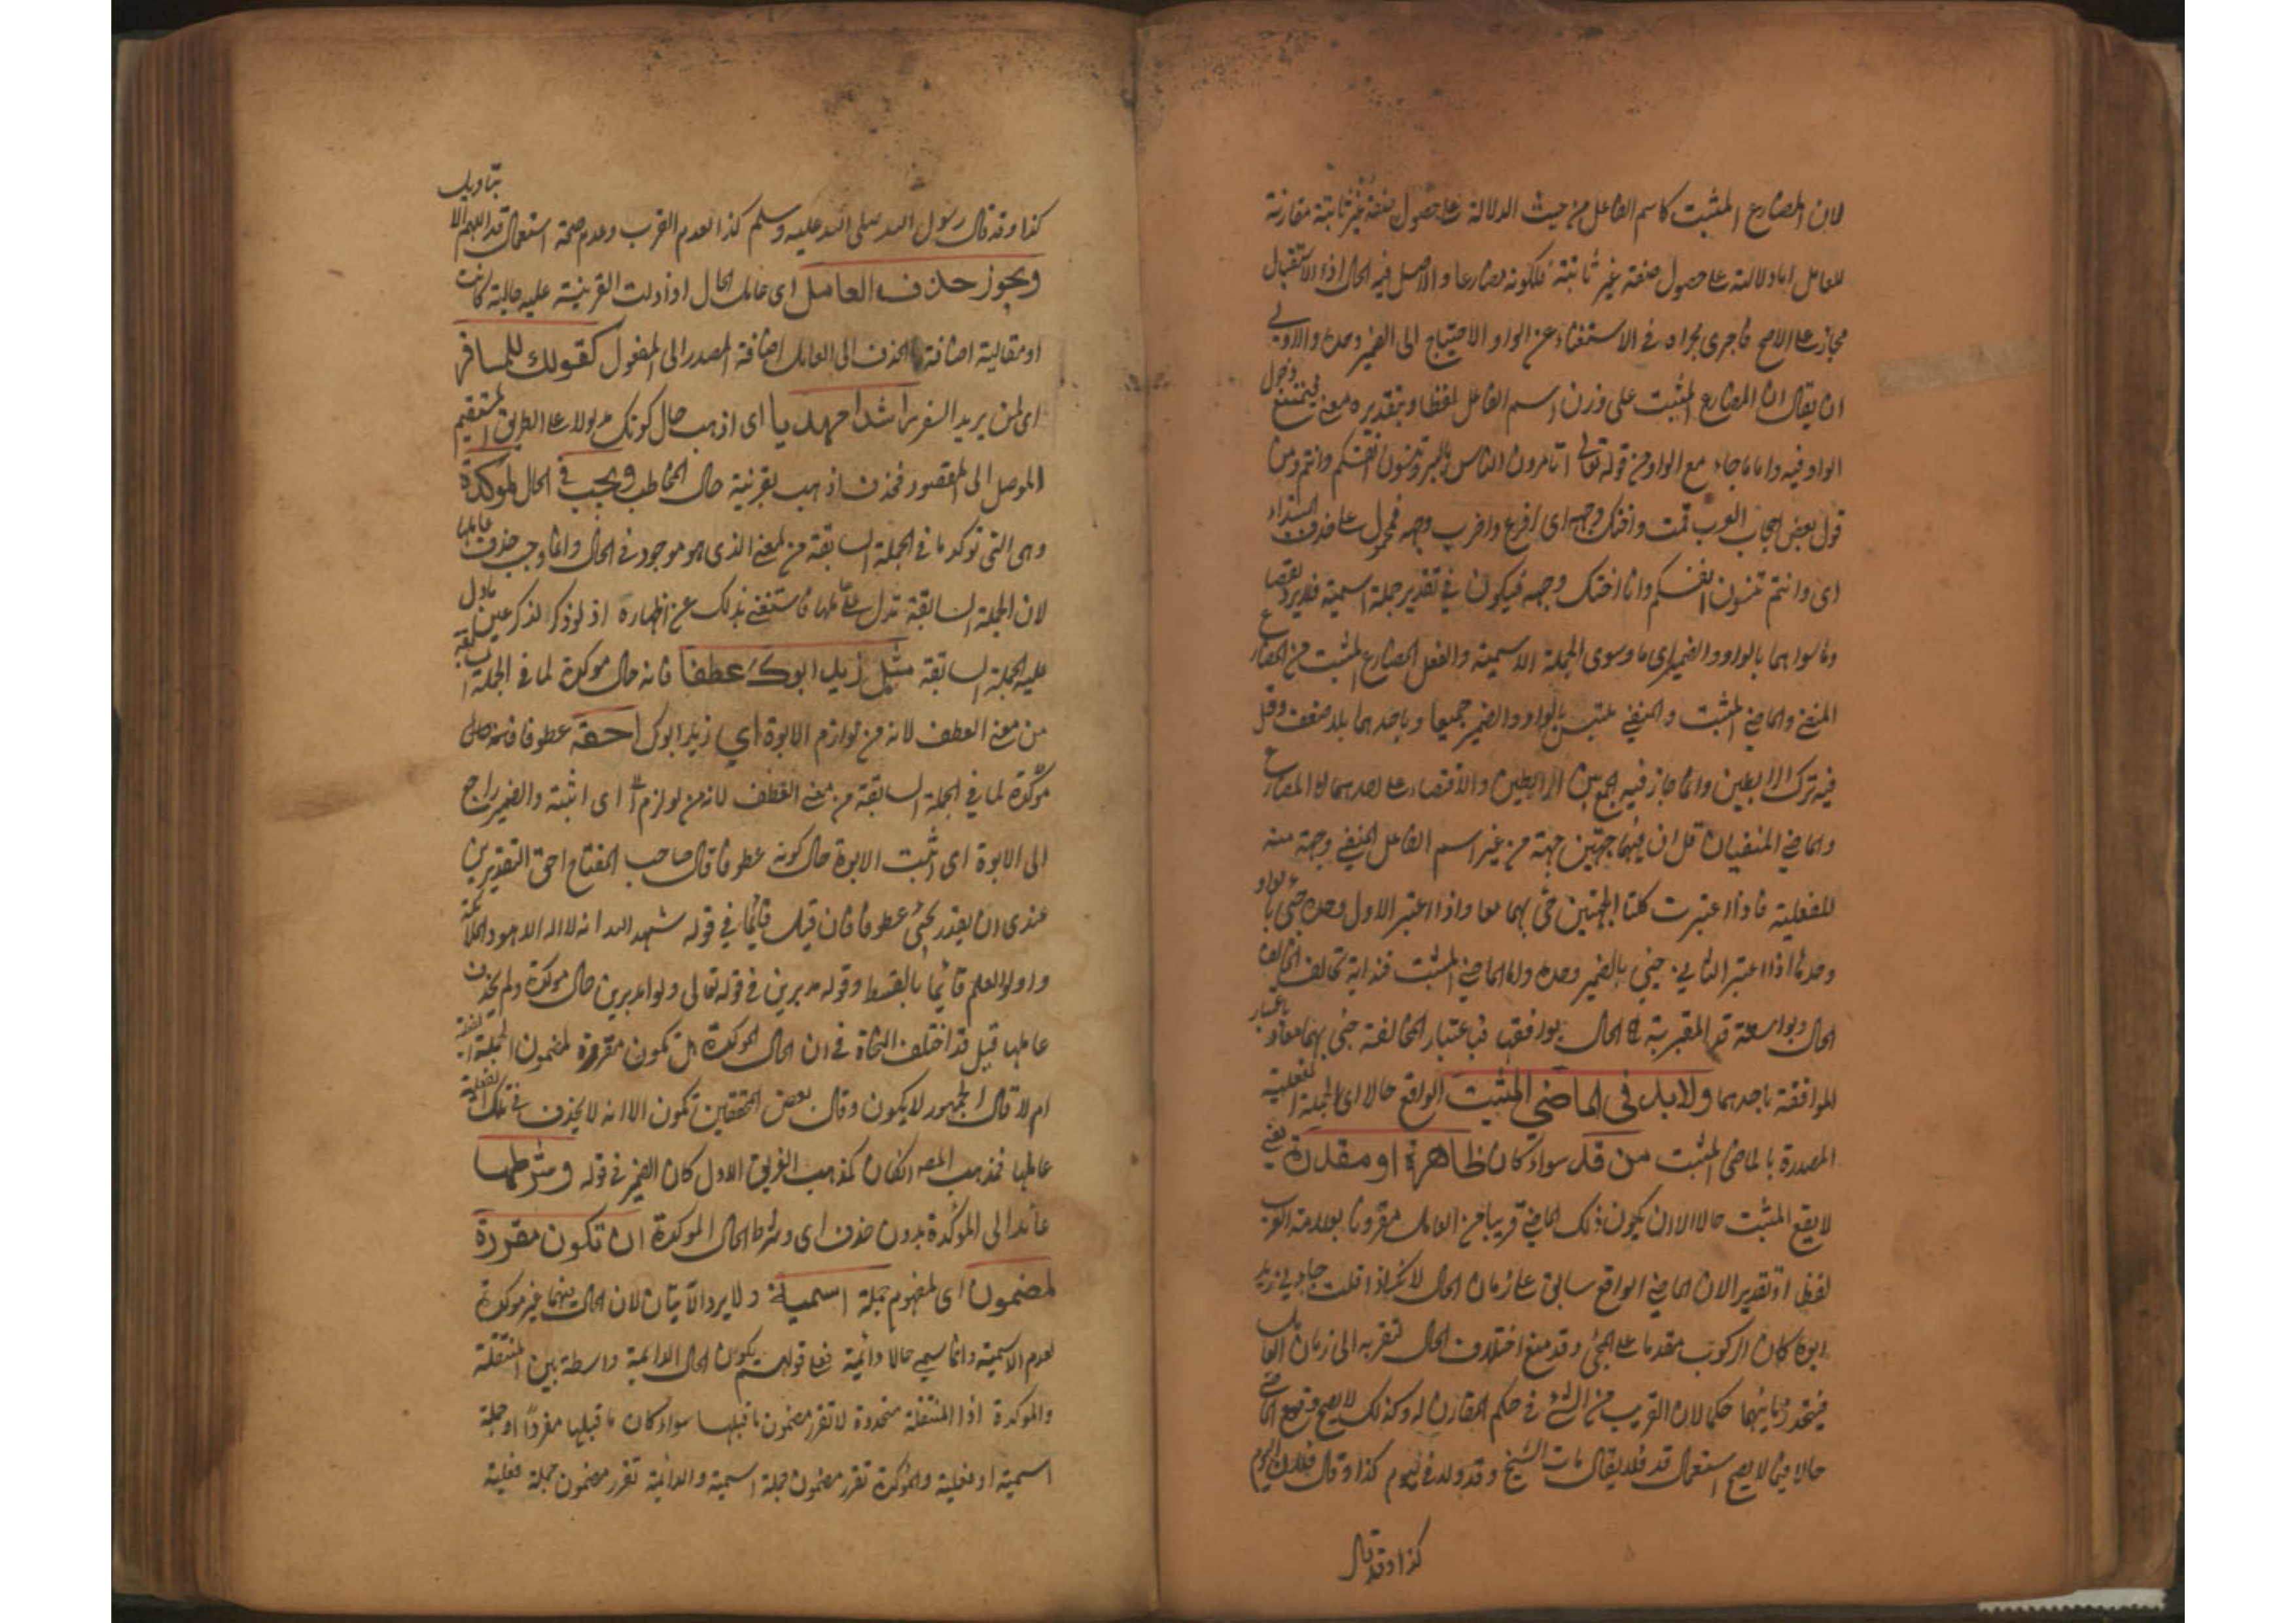 لان المضارع المثبت كاسم الفاعل من حيث الدلالة على حصول صفة غير ثابتة مقارنة
للعامل اما دلالته على حصول صفة غير ثابتة فلكونه مضارعا والاصل فيه الحال اذ الاستقبال
مجاز على الاصح فاجرى مجراه في الاستغناء عن الواو والاحتياج الى الضمير وحده والاولى
ان يقال ان المضارع المثبت على وزن اسم الفاعل لفظا وبتقديره معنى فيمتنع دخول
الواو فيه واما ما جاء مع الواو من قوله تعالى اتامرون الناس بالبر وتنسون انفسكم وانتم ومن
قول بعض العرب قمت واصك وجهه اى واضرب وجهه فمحمول على حذف المبتداء
اى وانتم تنسون انفسكم وانا اصك وجهه فيكون في تقدير جملة اسمية فلا يرد نقضا
وما سواهما بالواو والضمير اى ما سوى الجملة الاسمية والفعل المضارع المثبت من المضارع
المنفي والماضي المثبت والمنفي ملتبس بالواو والضمير جميعا وباحدهما بلا ضعف وقل
فيه ترك الرابطين وانما جاز فيه الجمع بين الرابطين والاقتصار على احدهما لان المضارع
والماضي المنفيان قل ان فيهما جهتين جهة من غير اسم الفاعل المنفي وجهة منه
للفعلية فاذا اعتبرت كلتا الجهتين جئ بهما معا واذا اعتبر الاول وحده جئ بالواو
وحدها اذا اعتبر الثاني جئ بالضمير وحده واما الماضي المثبت فمذاته تخالف
الحال وبواسطة قد المقربة الى الحال يوافقها فباعتبار المخالفة جئ بهما معا وباعتبار
الموافقة باحدهما ولابد في الماضي المثبت الواقع حالا اى الجملة الفعلية
المصدرة بالماضي المثبت من قد سواء كان ظاهرة او مقدرة يعني
لا يقع المثبت حالا الا ان يكون ذلك الماضي قريبا من العامل مقرونا بعلامة القرب
لفظا او تقديرا لان الماضي الواقع سابق على زمان الحال لانك اذا قلت جاءني زيد
ابوه كان الركوب مقدما على المجئ وقد منع اختلاف الحال لتقربه الى زمان العامل
فيتحد زمانهما حكما لان القريب من الشئ في حكم المقارن له وكذلك لا يصح وقوع الماضي
حالا فيما لا يصح استعمال قد فلا يقال مات الشيخ وقد ولد في يوم كذا وقال فلان اليوم
كذا وقد قال
كذا وقد قال رسول الله صلى الله عليه وسلم كذا لعدم القرب وعدم صحة استعمال قد اللهم الا بتاويل
ويجوز حذف العامل اى عامل الحال اذا دلت القرينة عليه حالية كانت
او مقالية اضافة الحذف الى العامل اضافة المصدر الى المفعول كقولك للمسافر
اى لمن يريد السفر راشدا مهديا اى اذهب حال كونك مدلولا على الطريق المستقيم
الموصل الى المقصود فحذف اذهب بقرينة حال المخاطب ويجب في الحال المؤكدة
وهى التى توكد ما في الجملة السابقة من المعنى الذى هو موجود في الحال وانما وجب حذف عاملها
لان الجملة السابقة تدل على عاملها فاستغنى بذلك عن اظهاره اذ لو ذكر لذكر عين ما دل
عليه الجملة السابقة مثل زيد ابوك عطوفا فانه حال موكدة لما في الجملة السابقة
من معنى العطف لانه من لوازم الابوة اي زيد ابوك احقه عطوفا فانه حال
مؤكدة لما في الجملة السابقة من معنى العطف لانه من لوازم اى اثبته والضمير راجع
الى الابوة اى اثبت الابوة حال كونه عطوفا قال صاحب المفتاح احق التقديرين
عندى ان يقدر يجئ عطوفا فان قيل قائما في قوله شهد الله انه لا اله الا هو والملائكة
واولوا العلم قائما بالقسط وقوله مدبرين في قوله تعالى ولوا مدبرين حال موكدة ولم يحذف
عاملها قيل قد اختلف النحاة في ان الحال الموكدة هل تكون مقررة لمضمون الجملة الفعلية
ام لا قال الجمهور لا يكون وقال بعض المحققين تكون الا انه لا يحذف في تلك الفعلية
عاملها فمذهب المصـ ان كان كمذهب الفريق الاول كان الضمير في قوله وشرطها
عائدا الى المؤكدة بدون حذف اى وشرط الحال الموكدة ان تكون مقررة
لمضمون اى لمفهوم جملة اسمية ولا يرد الآيتان لان الحال فيهما غير موكدة
لعدم الاسمية وانما سمي حالا دائمة فعلى قولهم يكون الحال الدائمة واسطة بين المنتقلة
والموكدة اذ المنتقلة متجددة لا تقرر مضمون ما قبلها سواء كان ما قبلها مفردا او جملة
اسمية او فعلية والمؤكدة تقرر مضمون جملة اسمية والدائمة تقرر مضمون جملة فعلية